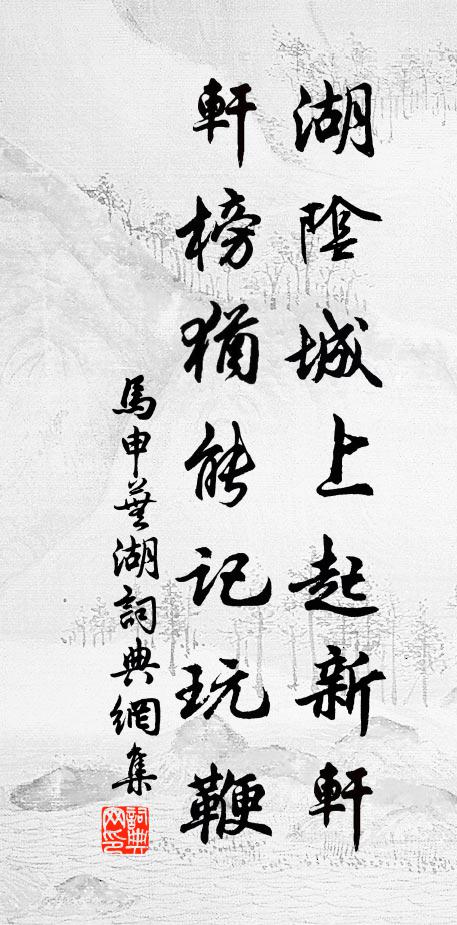 湖陰城上起新軒
軒榜猶能記玩鞭
馬申蕪湖詞典網集
詞典网印